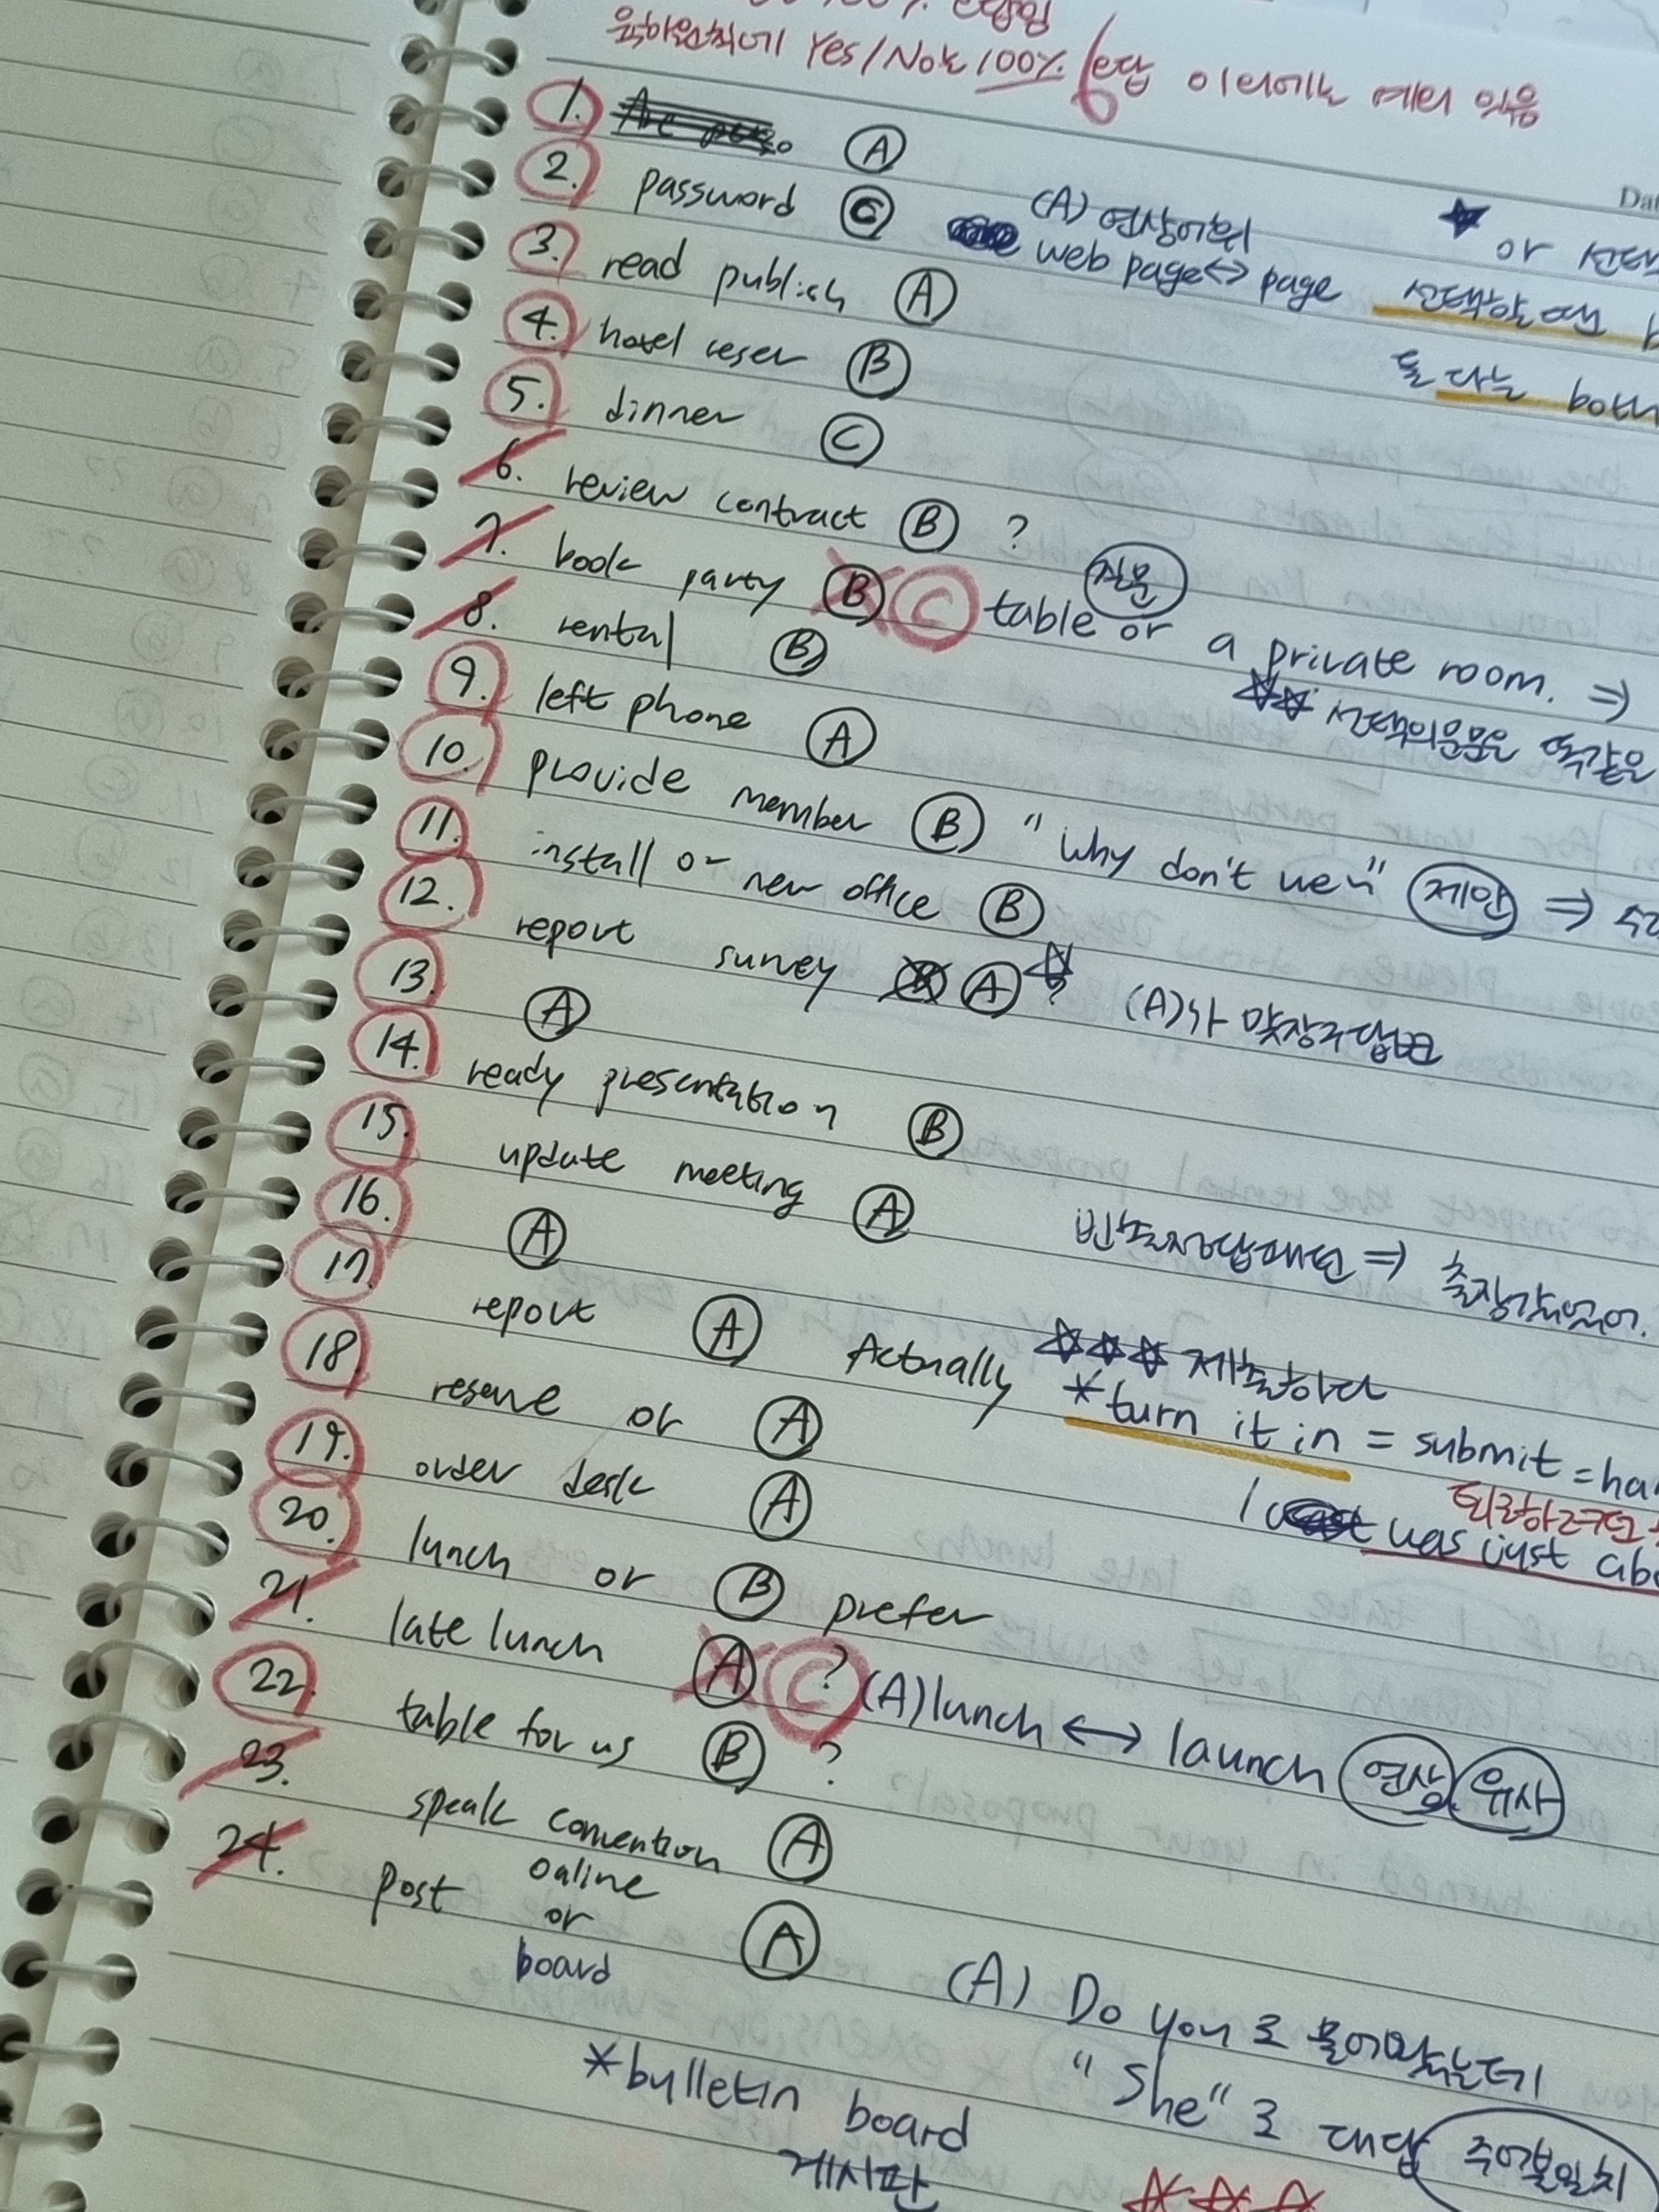 육하원칙에 Yes/No는 100% 오답 이외에는 예외 있음
1. A
2. password C (A) 연상어휘
web page ↔ page
Dat
★ or 선택
선택할 땐
둘 다는 both
3. read publish A
4. hotel reser B
5. dinner C
6. review contract B ?
7. book party B C table or a private room. ⇒
질문
☆☆ 선택의문문은 똑같은
8. rental B
9. left phone A
10. provide member B "why don't we~" 제안 ⇒
11. install or new office B
12. report survey B A ☆? (A)가 맞장구답변
13. A
14. ready presentation B
15. update meeting A
16. A 빈출정답패턴 ⇒ 출장갔었어.
17. report A Actually ☆☆☆ 제출하다
*turn it in = submit = han
18. reserve or A
퇴청하려던
I was just abo
19. order desk A
20. lunch or B prefer
21. late lunch A C ? (A) lunch ↔ launch 연상 유사
22. table for us B ?
23. speak convention A
24. post online or board A
(A) Do you로 물어봤는데
"She"로 대답 주어불일치
*bulletin board
게시판
☆☆☆